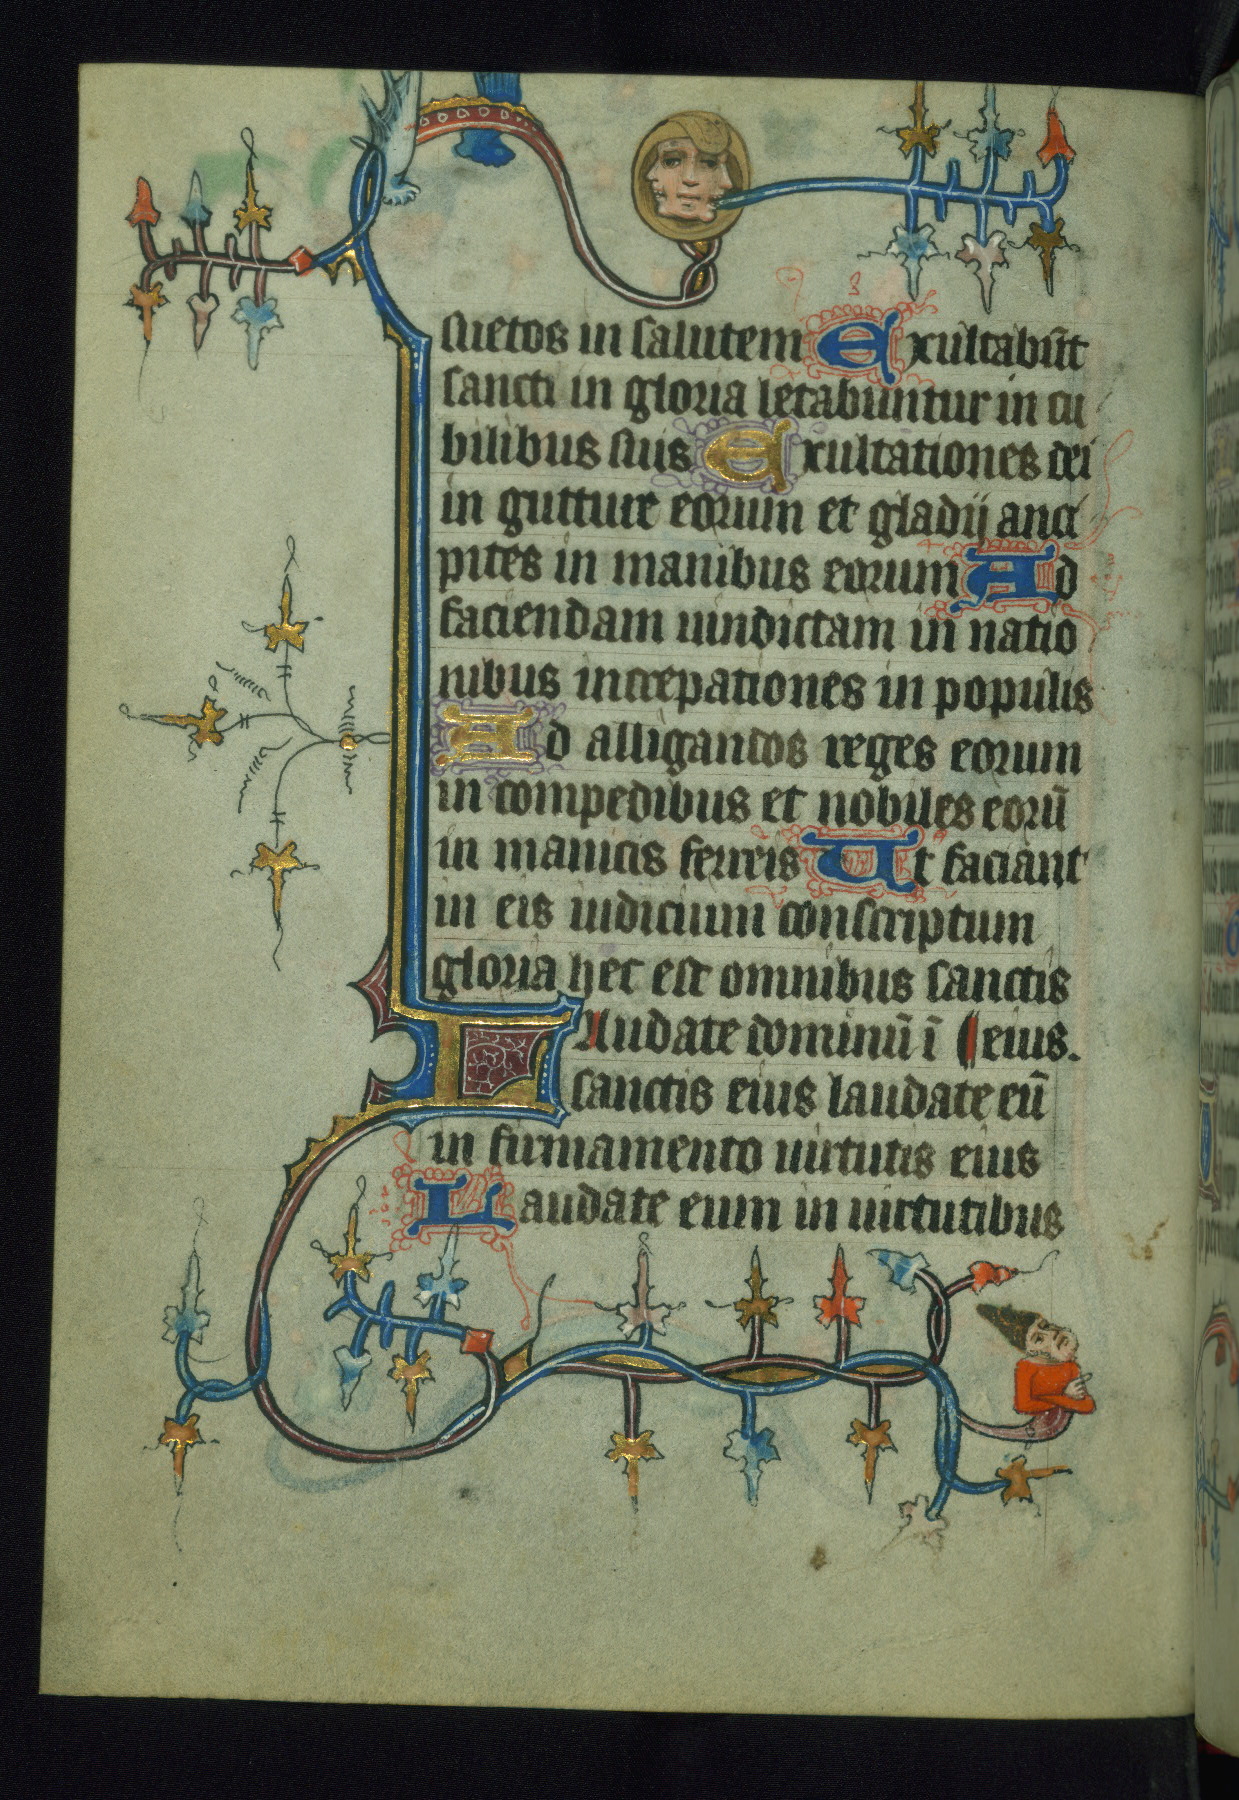 suetos in salutem Exultabūt
sancti in gloria letabuntur in cu
bilibus suis Exultationes dei
in gutture eorum et gladij anci
pites in manibus eorum Ad
faciendam uindictam in natio
nibus increpationes in populis
Ad alligandos reges eorum
in compedibus et nobiles eorū
in manicis ferreis Ut faciant
in eis iudicium conscriptum
gloria hec est omnibus sanctis
Laudate dominū ī eius.
sanctis eius laudate eū
in firmamento uirtutis eius
Laudate eum in uirtutibus